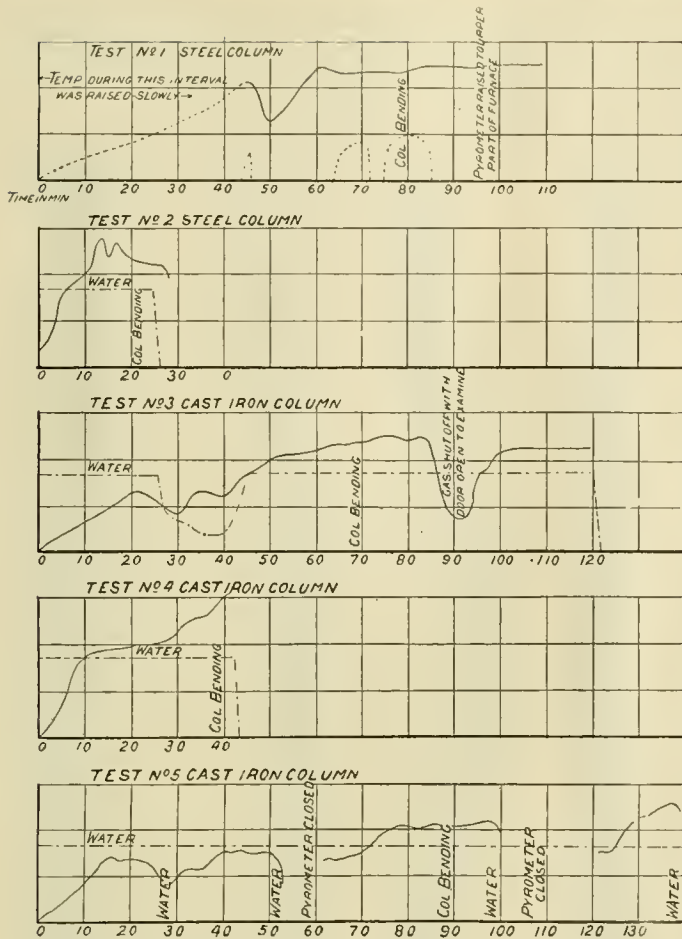 TEST Nº1 STEEL COLUMN
TEMP DURING THIS INTERVAL
WAS RAISED SLOWLY
COL BENDING
PYROMETER RAISED TO UPPER
PART OF FURNACE
10 20 30 40 50 60 70 80 90 100 110
TIME IN MIN
TEST Nº2 STEEL COLUMN
WATER
COL BENDING
0 10 20 30 0
TEST Nº3 CAST IRON COLUMN
WATER
COL BENDING
GAS SHUT OFF WITH
DOOR OPEN TO EXAMINE
0 10 20 30 40 50 60 70 80 90 100 110 120
TEST Nº4 CAST IRON COLUMN
WATER
COL BENDING
0 10 20 30 40
TEST Nº5 CAST IRON COLUMN
WATER
WATER
WATER
PYROMETER CLOSED
COL BENDING
WATER
PYROMETER
CLOSED
WATER
0 10 20 30 40 50 60 70 80 90 100 110 120 130